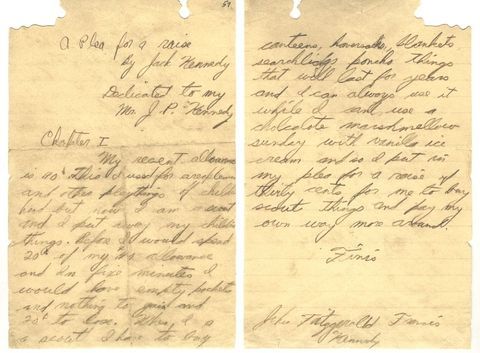 59
A Plea for a raise
by Jack Kennedy
Dedicated to my
Mr. J. P. Kennedy
Chapter I
My recent allowance
is 40¢. This I used for areoplanes
and other playthings of childhood
but now I am a scout
and I put away my childish
things. Before I would spend
20¢ of my 40¢ allowance
and in five minutes I
would have empty pockets
and nothing to gain and
20¢ to lose. When I a
a scout I have to buy
canteens, haversacks, blankets
searchliags poncho things
that will last for years
and I can always use it
while I cant use a
cholcalote marshmellow
sunday with vanilla ice
cream and so I put in
my plea for a raise of
thirty cents for me to buy
scout things and pay my
own way more around.
Finis
John Fitzgerald Francis
Kennedy